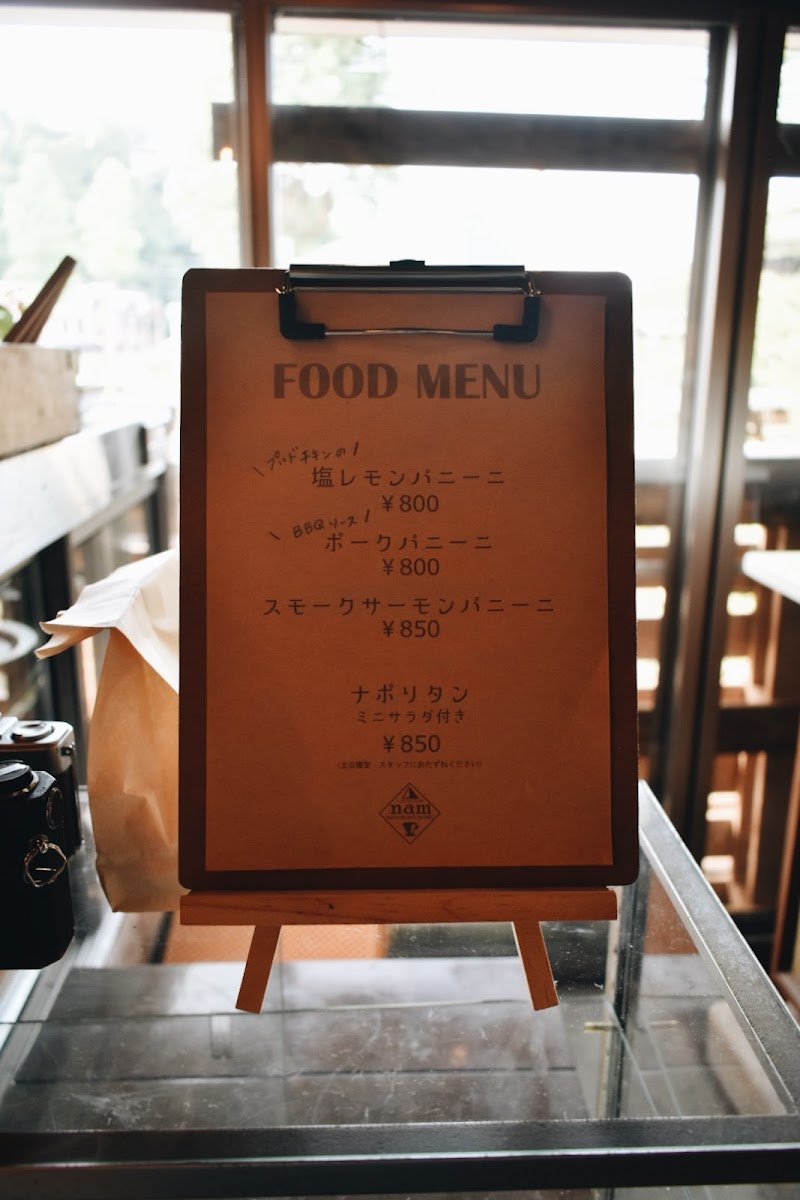 FOOD MENU
プルドチキンの
塩レモンパニーニ
¥800
BBQソース
ポークパニーニ
¥800
スモークサーモンパニーニ
¥850
ナポリタン
ミニサラダ付き
¥850
(土日限定 スタッフにおたずねください)
nam